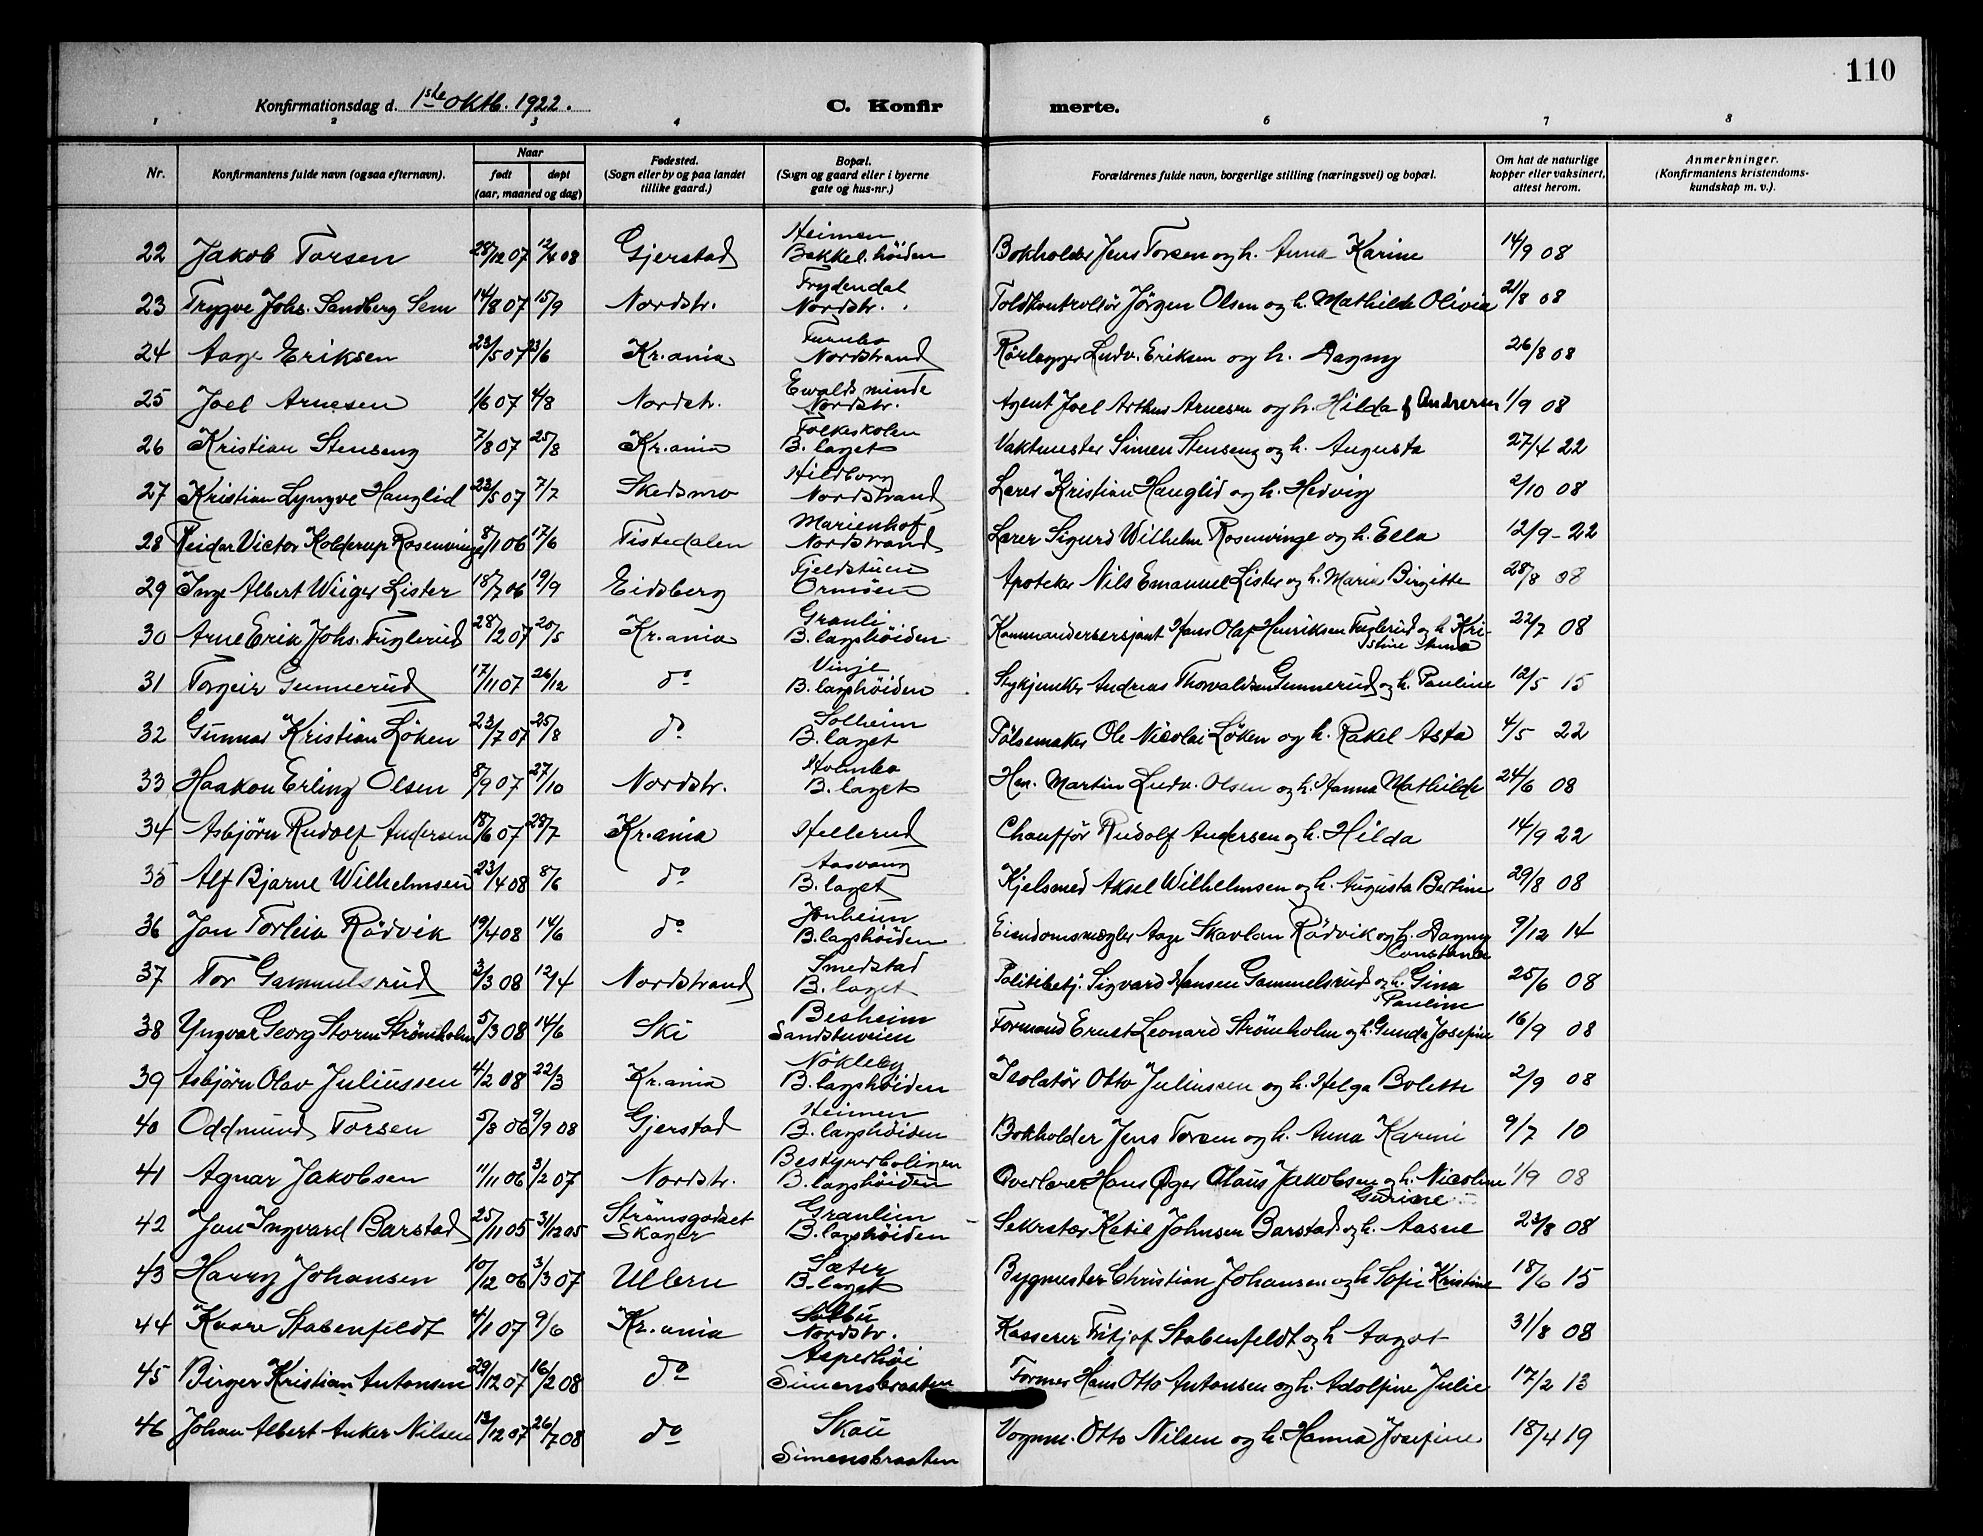 110
Konfirmationsdag d. 1ste oktb. 1922. C. Konfirmerte.
1 2 3 4 6 7 8
Nr. Konfirmantens fulde navn (ogsaa efternavn). Naar født døpt (aar, maaned og dag) Fødested. (Sogn eller by og paa landet tillike gaard.) Bopæl. (Sogn og gaard eller i byerne gate og hus-nr.) Forældrenes fulde navn, borgerlige stilling (næringsvei) og bopæl. Om hat de naturlige kopper eller vaksinert, attest herom. Anmerkninger. (Konfirmantens kristendomskundskap m. v.).
22 Jakob Torsen 28/12 07 12/4 08 Gjerstad Heimen Bekkel.höiden Bokholder Jens Torsen og h. Anna Karine 14/9 08
23 Trygve Johs. Sandberg Sem 14/8 07 15/9 Nordstr. Frydendal Nordstr. Toldkontrollör Jörgen Olsen og h. Mathilde Olivia 21/8 08
24 Aage Eriksen 23/5 07 23/6 Kr.ania Furubo Nordstrand Rörlægger Ludv. Eriksen og h. Dagny 26/8 08
25 Joel Arnesen 1/6 07 4/8 Nordstr. Ewalds minde Nordstr. Agent Joel Arthur Arnesen og h. Hilda f Andresen 1/9 08
26 Kristian Stenseng 7/8 07 25/8 Kr.ania Folkeskolen B.laget Vaktmester Simen Stenseng og h. Augusta 27/4 22
27 Kristian Lyngve Hauglid 23/5 07 7/7 Skedsmo Hildborg Nordstrand Lærer Kristian Hauglid og h. Hedvig 2/10 08
28 Reidar Victor Kolderup Rosenvinge 8/1 06 17/6 Tistedalen Marienhof Nordstrand Lærer Sigurd Wilhelm Rosenvinge og h. Ella 12/9 - 22
29 Inge Albert Wiiger Lister 18/7 06 19/9 Eidsberg Fjeldstuen Ormöen Apoteker Nils Emanuel Lister og h. Marie Birgitte 28/8 08
30 Arne Erik Johs. Fuglerud 28/2 07 20/5 Kr.ania Granli B.lagshöiden Kommandersersjant Hans Olaf Henriksen Fuglerud og h. Kristine Anna 22/7 08
31 Torgeir Gunnerud 17/11 07 26/12 do Vinje B.lagshöiden Stykjunker Andreas Thorvaldsen Gunnerud og h. Pauline 12/5 15
32 Gunnar Kristian Löken 23/7 07 25/8 do Solheim B.laget Pölsemaker Ole Nicolai Löken og h. Rakel Asta 4/5 22
33 Haakon Erling Olsen 8/9 07 27/10 Nordstr. Holmbo B.laget Martin Ludv. Olsen og h. Hanna Mathilde 24/6 08
34 Asbjörn Rudolf Andersen 18/6 07 28/7 Kr.ania Hellerud Chaufför Rudolf Andersen og h. Hilda 14/9 22
35 Alf Bjarne Wilhelmsen 23/4 08 8/6 do Aasvang B.laget Kjelsmed Aksel Wilhelmsen og h. Augusta Bertine 29/8 08
36 Jan Torleiv Rödvik 19/4 08 14/6 do Jonheim B.lagshöiden Eiendomsmægler Aage Skavlan Rödvik og h. Dagny Constance 9/12 14
37 Tor Gammelsrud 3/3 08 12/4 Nordstrand Smedstad B.laget Politibetj. Sigvard Hansen Gammelsrud og h. Gina Pauline 25/6 08
38 Yngvar Georg Storm Strömholm 5/3 08 14/6 Ski Besheim Sandstuveien Formand Ernst Leonard Strömholm og h. Gunda Josefine 16/9 08
39 Asbjörn Olav Juliussen 4/2 08 22/3 Kr.ania Nökleby B.lagshöiden Isolatör Otto Juliussen og h. Helga Bolette 2/9 08
40 Oddmund Torsen 5/8 06 9/9 08 Gjerstad Heimen B.lagshöiden Bokholder Jens Torsen og h. Anna Karine 9/7 10
41 Agnar Jakobsen 11/11 06 3/2 07 Nordstr. Bestyrerboligen B.lagshöiden Overlærer Hans Öger Olaus Jakobsen og h. Nicoline Gurine 1/9 08
42 Jan Ingvard Barstad 25/11 05 31/12 05 Strömsgodset Skoger Granlien B.lagshöiden Sekretær Ketil Johnsen Barstad og h. Aasne 23/8 08
43 Harry Johansen 10/12 06 3/3 07 Ullern Sæter B.laget Bygmester Christian Johansen og h. Sofie Kristine 18/6 15
44 Kaare Stabenfeldt 4/1 07 9/6 Kr.ania Solbu Nordstr. Kasserer Fritjof Stabenfeldt og h Aagot 31/8 08
45 Birger Kristian Antonsen 29/12 07 16/2 08 do Asperhöi Simensbraaten Former Hans Otto Antonsen og h. Adolfine Julie 17/2 13
46 Johan Albert Anker Nilsen 13/12 07 26/7 08 do Skau Simensbraaten Vognm. Otto Nilsen og h. Hanna Josefine 18/4 19